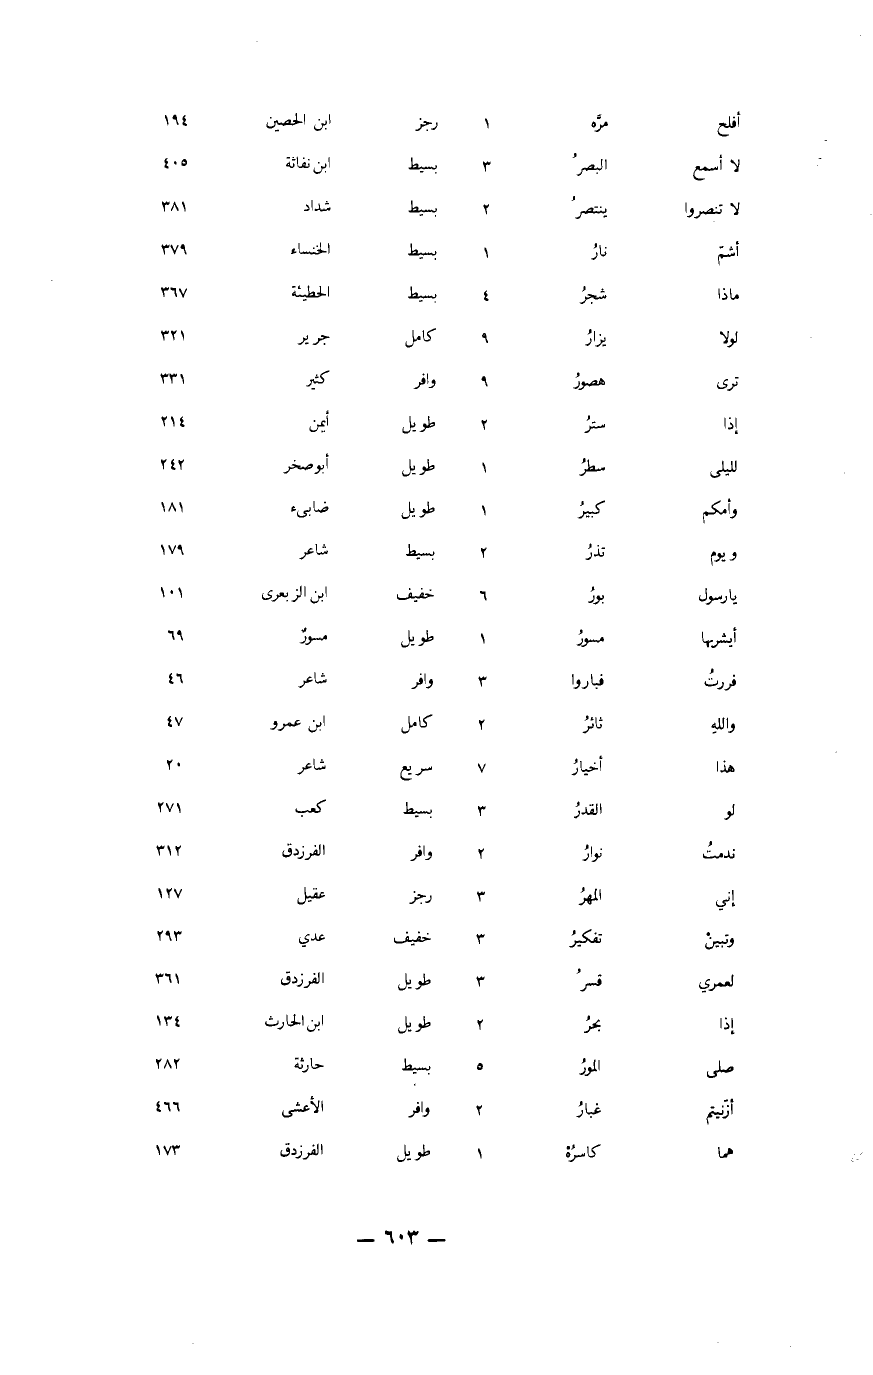 أفلح مرَّه ١ رجز ابن الحصين ١٩٤
لا أسمع البصرُ ٣ بسيط ابن نفاثة ٤٠٥
لا تنصروا ينتصرُ ٢ بسيط شداد ٣٨١
أشمّ نارُ ١ بسيط الخنساء ٣٧٩
ماذا شجرُ ٤ بسيط الحطيئة ٣٦٧
لولا يزارُ ٩ كامل جرير ٣٢١
ترى هصورُ ٩ وافر كثير ٣٣١
إذا سترُ ٢ طويل أيمن ٢١٤
لليلى سطرُ ١ طويل أبوصخر ٢٤٢
وأمكم كبيرُ ١ طويل ضابىء ١٨١
ويوم تذرُ ٢ بسيط شاعر ١٧٩
يارسول بورُ ٦ خفيف ابن الزبعرى ١٠١
أيشربها مسورُ ١ طويل مسورٌ ٦٩
فررتُ فباروا ٣ وافر شاعر ٤٦
واللهِ ثائرُ ٢ كامل ابن عمرو ٤٧
هذا أخيارُ ٧ سريع شاعر ٢٠
لو القدرُ ٣ بسيط كعب ٢٧١
ندمتُ نوارُ ٢ وافر الفرزدق ٣١٢
إني المهرُ ٣ رجز عقيل ١٢٧
وتبينْ تفكيرُ ٣ خفيف عدي ٢٩٣
لعمري قسرُ ٣ طويل الفرزدق ٣٦١
إذا بحرُ ٢ طويل ابن الحارث ١٣٤
صلى المورُ ٥ بسيط حارثة ٢٨٢
أزّنيتم غبارُ ٢ وافر الأعشى ٤٦٦
هما كاسرُهْ ١ طويل الفرزدق ١٧٣
— ٦٠٣ —